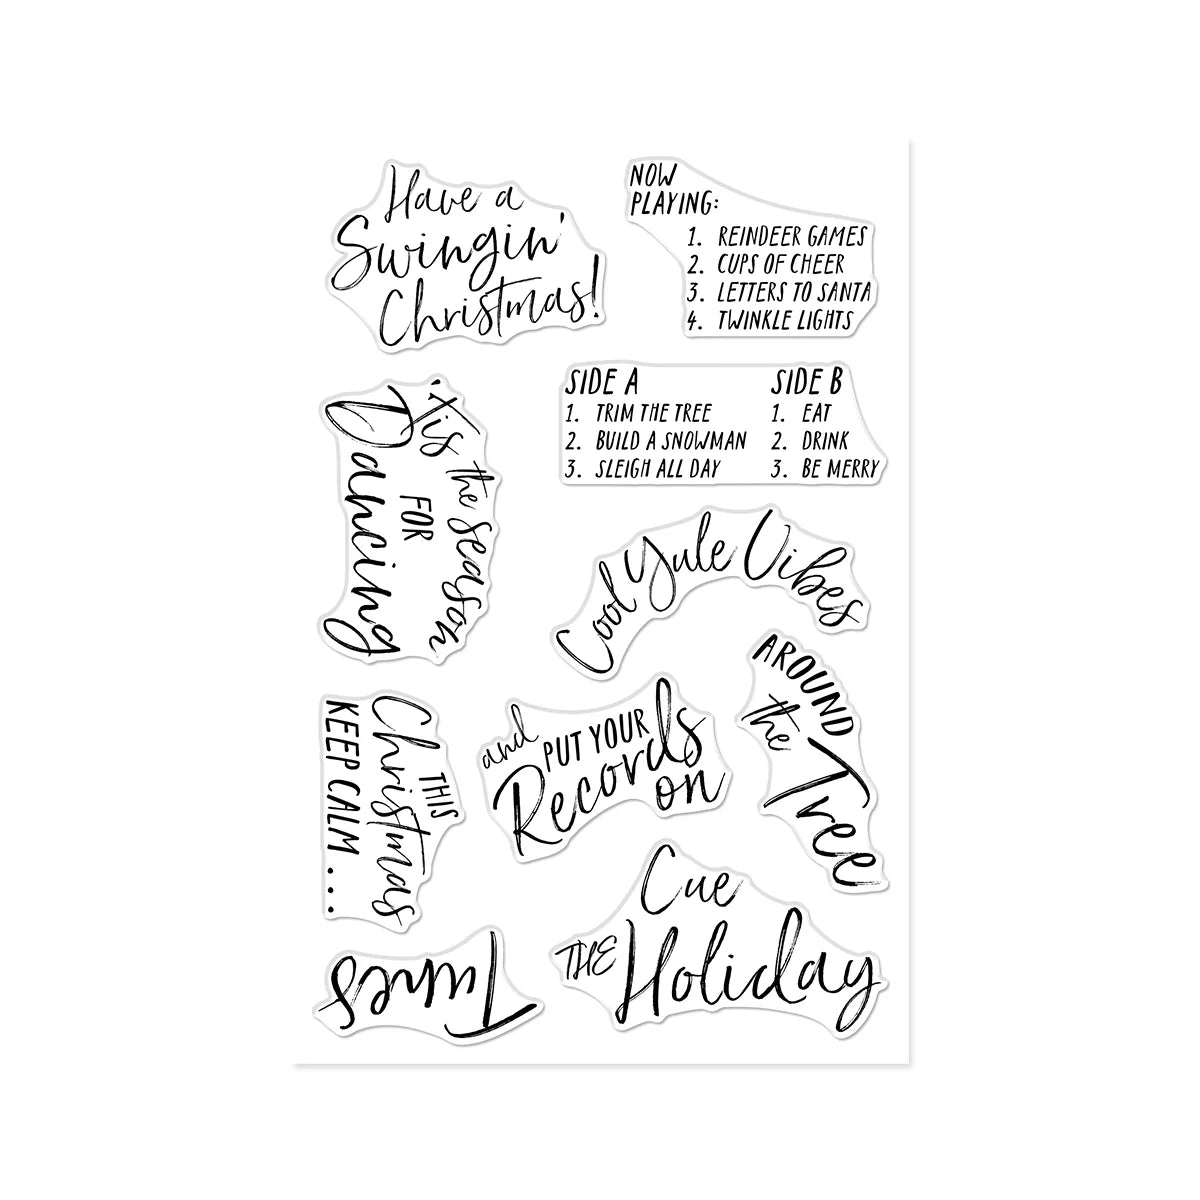 Have a
Swingin'
Christmas!
NOW
PLAYING:
1. REINDEER GAMES
2. CUPS OF CHEER
3. LETTERS TO SANTA
4. TWINKLE LIGHTS
SIDE A
1. TRIM THE TREE
2. BUILD A SNOWMAN
3. SLEIGH ALL DAY
SIDE B
1. EAT
2. DRINK
3. BE MERRY
'Tis the season
FOR
Dancing
Cool Yule Vibes
AROUND
the Tree
and PUT YOUR
Records
on
THIS
Christmas
KEEP CALM...
Cue
THE Holiday
Tunes